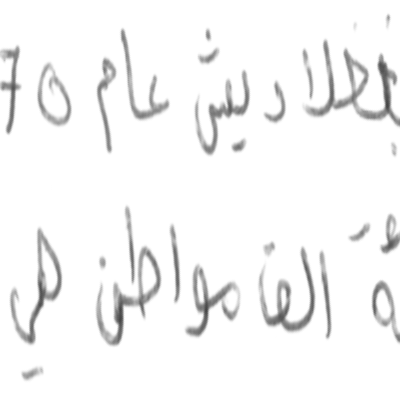 بنغلاديش عام 70
ئة الف مواطن في